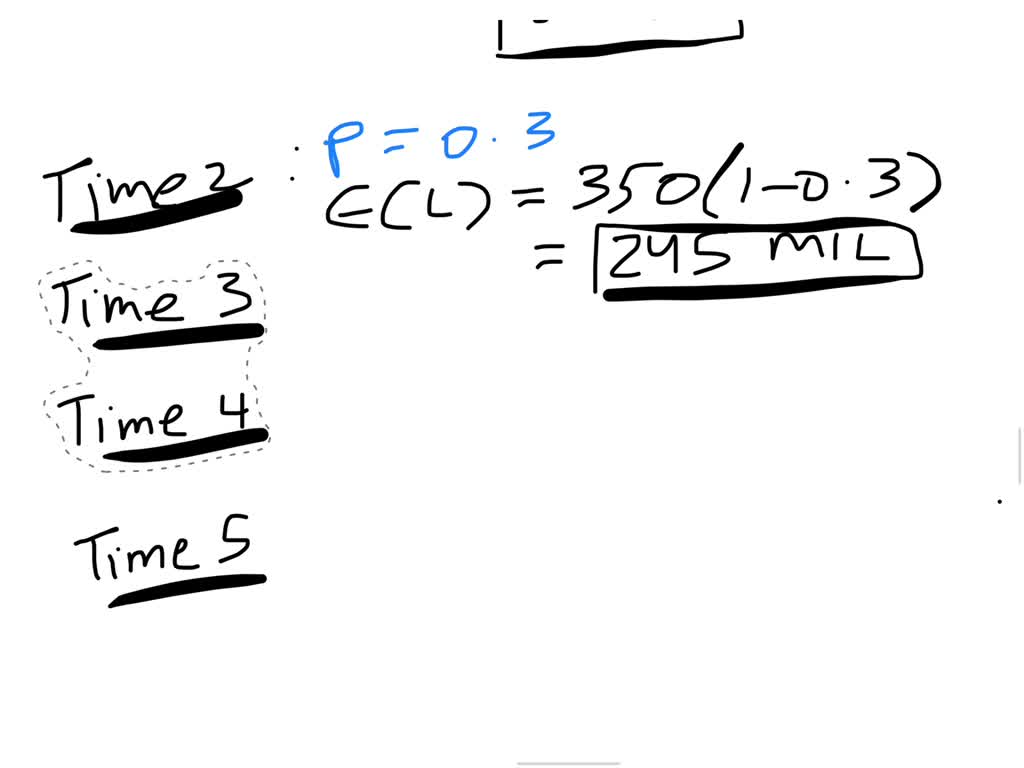 Time 2 : P = 0.3
E(L) = 350(1-0.3)
= 245 MIL
Time 3
Time 4
Time 5